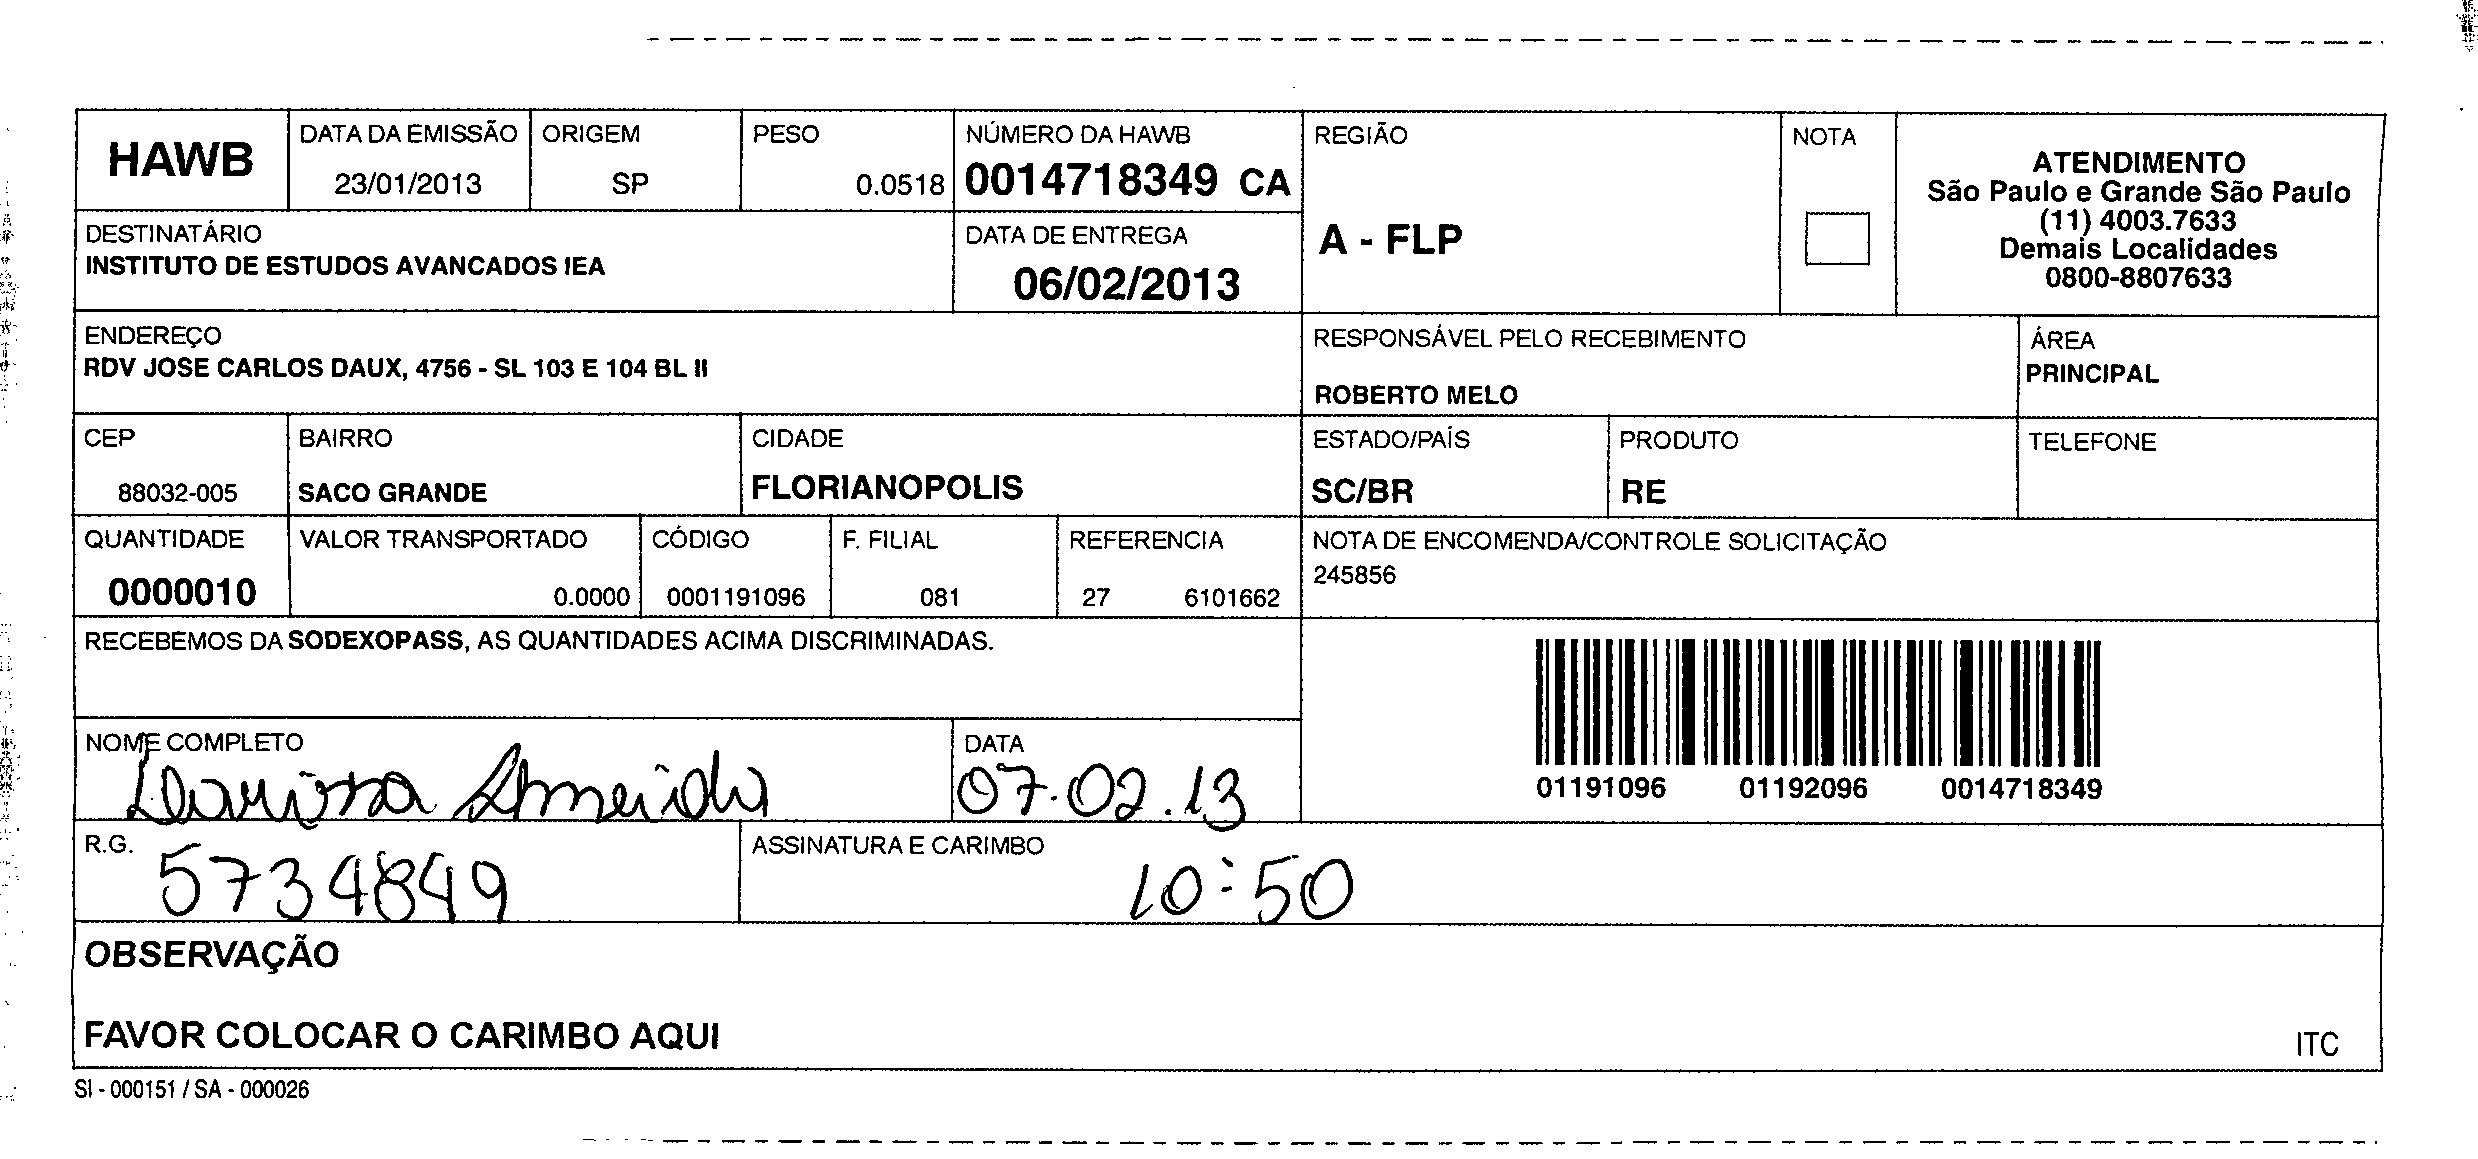 HAWB
DATA DA EMISSÃO
23/01/2013
ORIGEM
SP
PESO
0.0518
NÚMERO DA HAWB
0014718349 CA
REGIÃO
A - FLP
NOTA
ATENDIMENTO
São Paulo e Grande São Paulo
(11) 4003.7633
Demais Localidades
0800-8807633
DESTINATÁRIO
INSTITUTO DE ESTUDOS AVANCADOS IEA
DATA DE ENTREGA
06/02/2013
ENDEREÇO
RDV JOSE CARLOS DAUX, 4756 - SL 103 E 104 BL II
RESPONSÁVEL PELO RECEBIMENTO
ROBERTO MELO
ÁREA
PRINCIPAL
CEP
88032-005
BAIRRO
SACO GRANDE
CIDADE
FLORIANOPOLIS
ESTADO/PAÍS
SC/BR
PRODUTO
RE
TELEFONE
QUANTIDADE
0000010
VALOR TRANSPORTADO
0.0000
CÓDIGO
0001191096
F. FILIAL
081
REFERENCIA
27 6101662
NOTA DE ENCOMENDA/CONTROLE SOLICITAÇÃO
245856
RECEBEMOS DA SODEXOPASS, AS QUANTIDADES ACIMA DISCRIMINADAS.
01191096 01192096 0014718349
NOME COMPLETO
Larissa Almeida
DATA
07.02.13
R.G.
5734849
ASSINATURA E CARIMBO
10:50
OBSERVAÇÃO
FAVOR COLOCAR O CARIMBO AQUI
ITC
SI - 000151 / SA - 000026